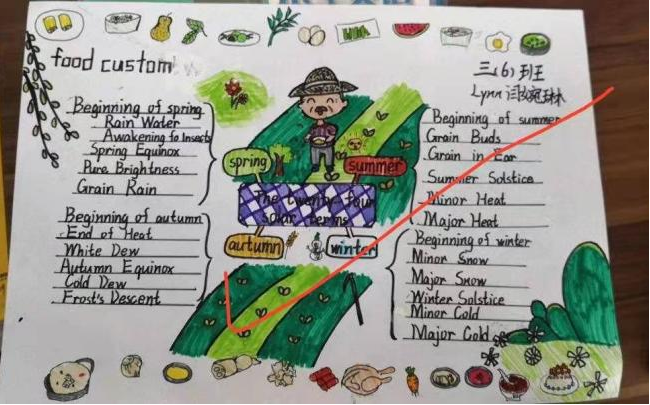 food custom
三(6)班
Lynn
Beginning of spring
Rain Water
Awakening to Insects
Spring Equinox
Pure Brightness
Grain Rain
Beginning of summer
Grain Buds
Grain in Ear
Summer Solstice
Minor Heat
Major Heat
spring
summer
The twenty-four
solar terms
autumn
winter
Beginning of autumn
End of Heat
White Dew
Autumn Equinox
Cold Dew
Frost's Descent
Beginning of winter
Minor Snow
Major Snow
Winter Solstice
Minor Cold
Major Cold